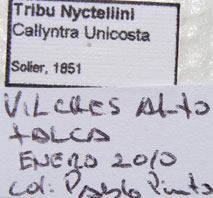 Tribu Nyctellini
Callyntra Unicosta
Solier, 1851
VILCHES ALTO
TALCA
ENERO 2010
COL: PABLO Pinto